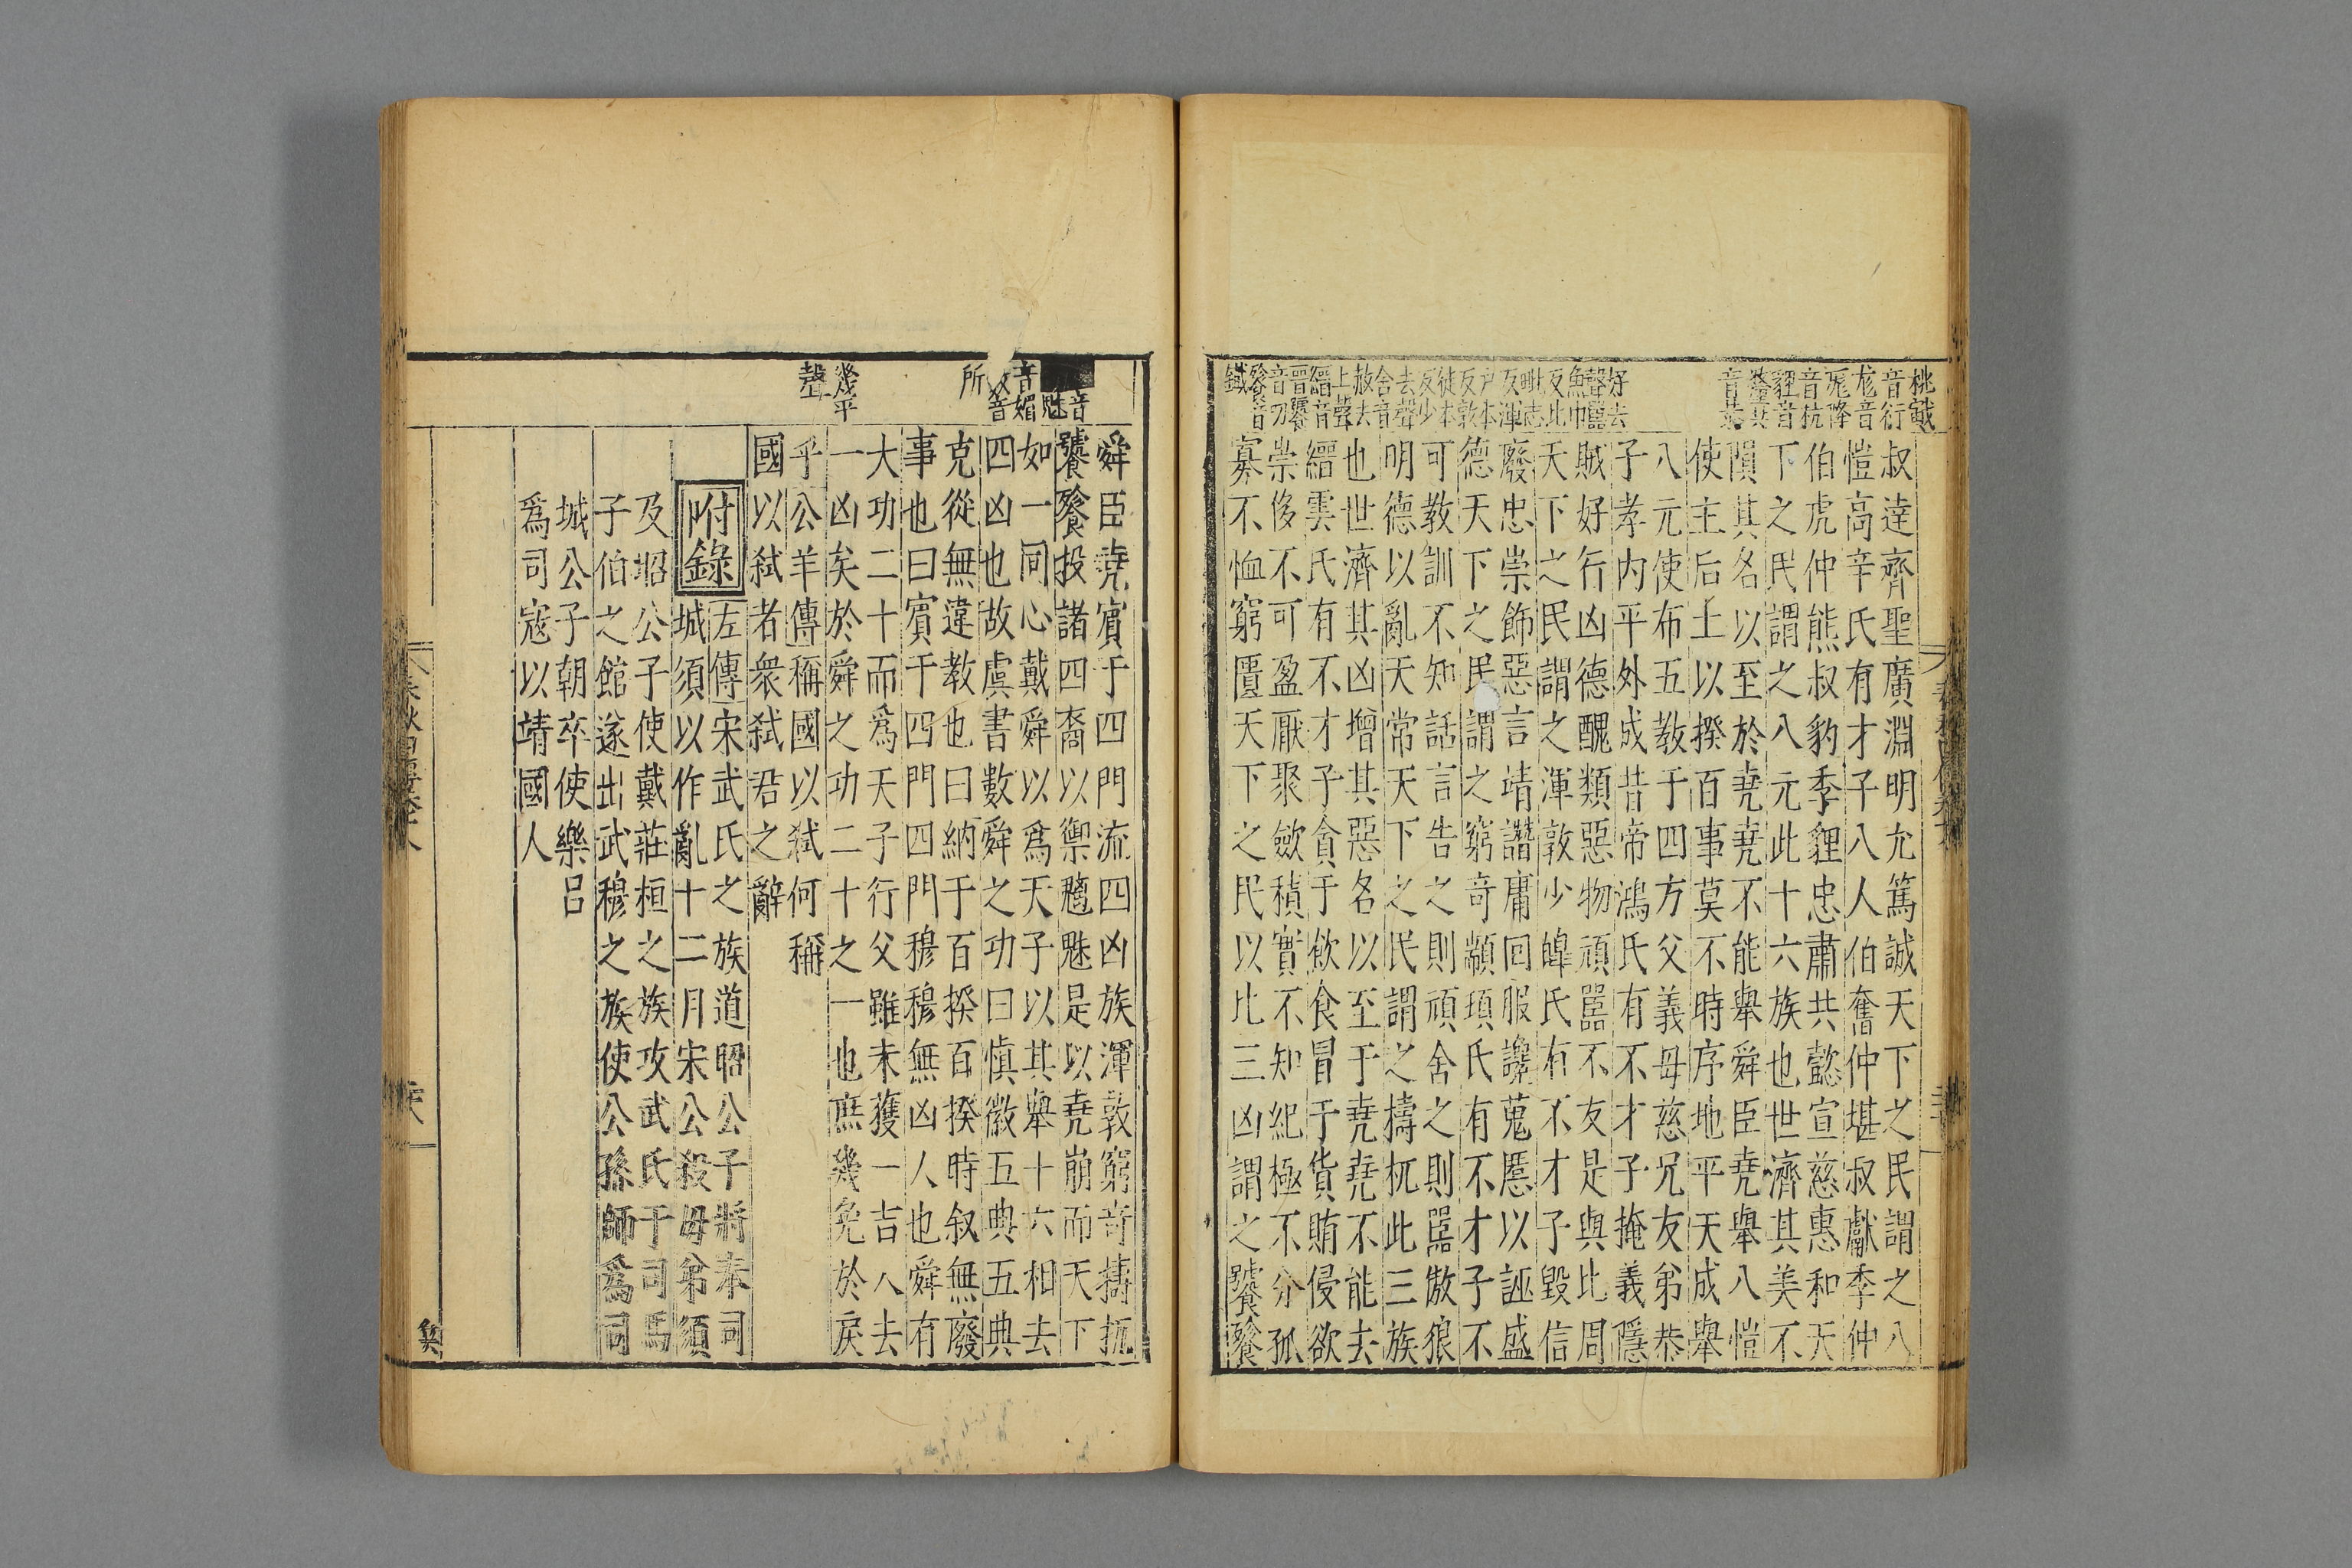 叔達齊聖廣淵明允篤誠天下之民謂之八
愷高辛氏有才子八人伯奮仲堪叔獻季仲
伯虎仲熊叔豹季貍忠肅共懿宣慈惠和天
下之民謂之八元此十六族也世濟其美不
隕其名以至於堯堯不能舉舜臣堯舉八愷
使主后土以揆百事莫不時序地平天成舉
八元使布五教于四方父義母慈兄友弟恭
子孝內平外成昔帝鴻氏有不才子掩義隱
賊好行凶德醜類惡物頑嚚不友是與比周
天下之民謂之渾敦少皡氏有不才子毀信
廢忠崇飾惡言靖譖庸回服讒蒐慝以誣盛
德天下之民謂之窮奇顓頊氏有不才子不
可教訓不知話言告之則頑舍之則嚚傲狠
明德以亂天常天下之民謂之檮杌此三族
也世濟其凶增其惡名以至于堯堯不能去
縉雲氏有不才子貪于飲食冒于貨賄侵欲
崇侈不可盈厭聚斂積實不知紀極不分孤
寡不恤窮匱天下之民以比三凶謂之饕餮
桃戭
音衍
尨音
厖降
音抗
貍音
釐共
音恭
好去
聲嚚
魚巾
反比
毗志
反渾
戶本
反敦
徒本
反少
去聲
舍音
赦去
上聲
縉音
晋饕
音刀
餮音
鐵
舜臣堯賓于四門流四凶族渾敦窮奇擣杌
饕餮投諸四裔以禦魑魅是以堯崩而天下
如一同心戴舜以爲天子以其舉十六相去
四凶也故虞書數舜之功曰慎徽五典五典
克從無違教也曰納于百揆百揆時叙無廢
事也曰賓于四門四門穆穆無凶人也舜有
大功二十而爲天子行父雖未獲一吉人去
一凶矣於舜之功二十之一也庶幾免於戾
乎公羊傳稱國以弑何稱
國以弑者衆弑君之辭
附錄
左傳宋武氏之族道昭公子將奉司
城須以作亂十二月宋公殺母弟須
及昭公子使戴莊桓之族攻武氏于司馬
子伯之館遂出武穆之族使公孫師爲司
城公子朝卒使樂呂
爲司寇以靖國人
音
魅
音媚
數音
所
幾平
聲